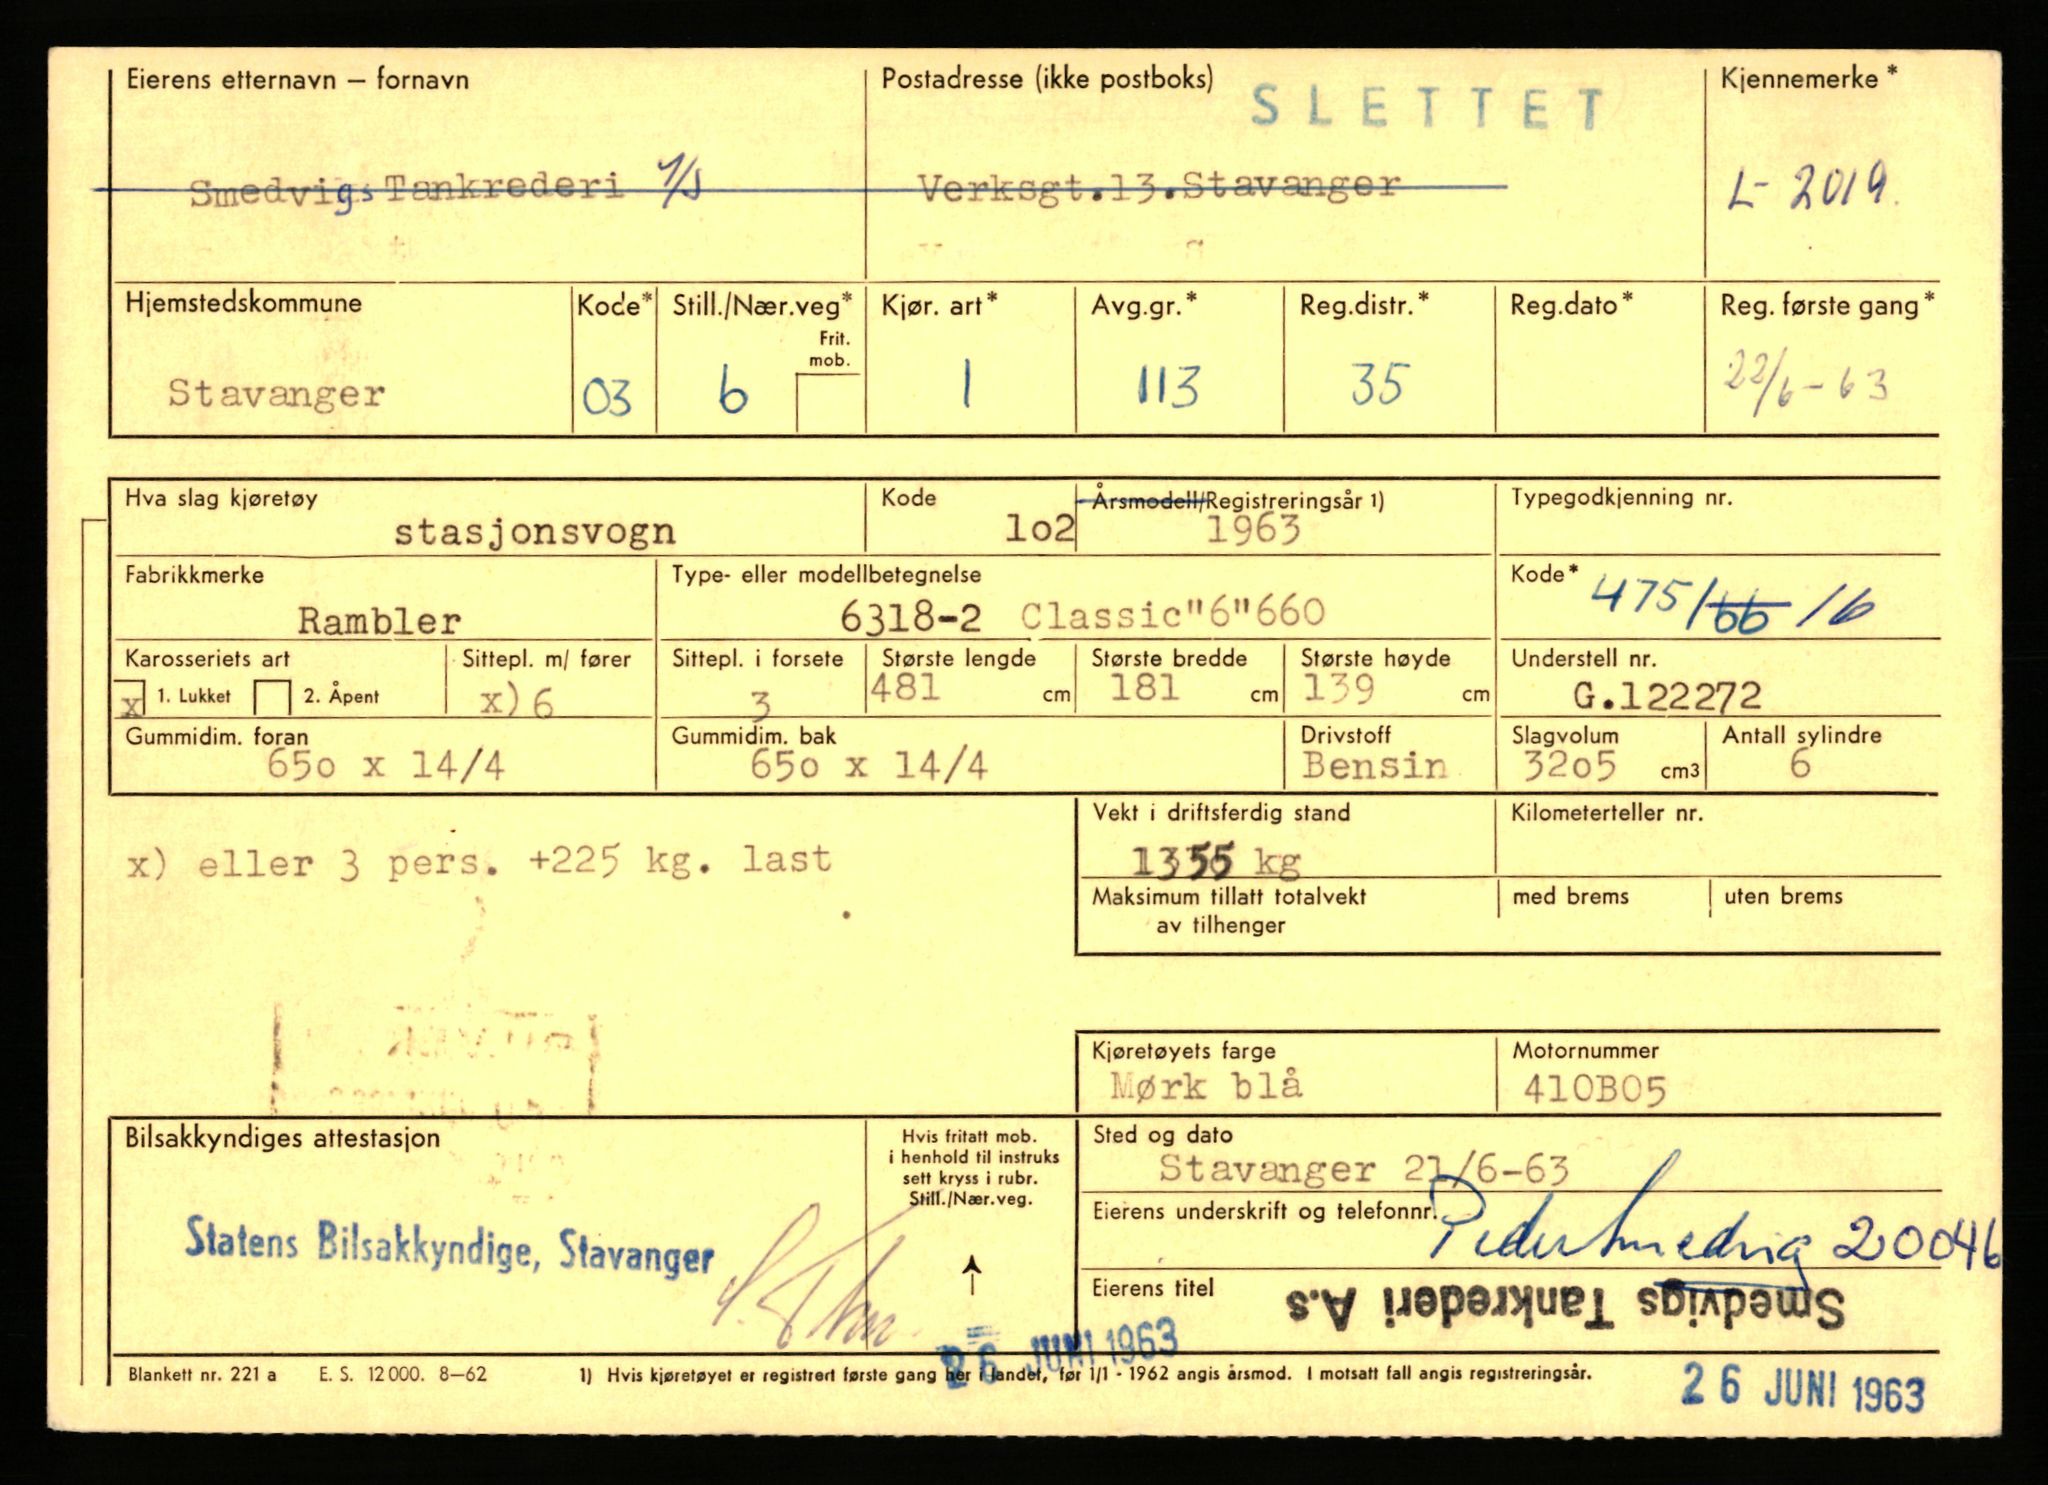 Eierens etternavn – fornavn
Postadresse (ikke postboks)
SLETTET
Kjennemerke*
Smedvigs Tankrederi A/S
Verksgt.13.Stavanger
L-2019.
Hjemstedskommune
Kode*
Still./Nær.veg*
Frit. mob.
Kjør. art*
Avg.gr.*
Reg.distr.*
Reg.dato*
Reg. første gang*
Stavanger
03
6
1
113
35
22/6-63
Hva slag kjøretøy
stasjonsvogn
Kode
1o2
Årsmodell/Registreringsår 1)
1963
Typegodkjenning nr.
Fabrikkmerke
Rambler
Type- eller modellbetegnelse
6318-2 Classic"6"660
Kode*
475/66/6
Karosseriets art
x 1. Lukket 2. Åpent
Sittepl. m/ fører
x)6
Sittepl. i forsete
3
Største lengde
481 cm
Største bredde
181 cm
Største høyde
139 cm
Understell nr.
G.122272
Gummidim. foran
65o x 14/4
Gummidim. bak
65o x 14/4
Drivstoff
Bensin
Slagvolum
32o5 cm3
Antall sylindre
6
x) eller 3 pers. +225 kg. last
Vekt i driftsferdig stand
1355 kg
Kilometerteller nr.
Maksimum tillatt totalvekt
av tilhenger
med brems
uten brems
Kjøretøyets farge
Mørk blå
Motornummer
410B05
Bilsakkyndiges attestasjon
Statens Bilsakkyndige, Stavanger
Hvis fritatt mob.
i henhold til instruks
sett kryss i rubr.
Still./Nær.veg.
Sted og dato
Stavanger 21/6-63
Eierens underskrift og telefonnr.
Peder Smedvig 20046
Eierens titel
Smedvigs Tankrederi A.s
26 JUNI 1963
Blankett nr. 221 a E. S. 12 000. 8–62
1) Hvis kjøretøyet er registrert første gang her i landet, før 1/1 - 1962 angis årsmod. I motsatt fall angis registreringsår.
26 JUNI 1963